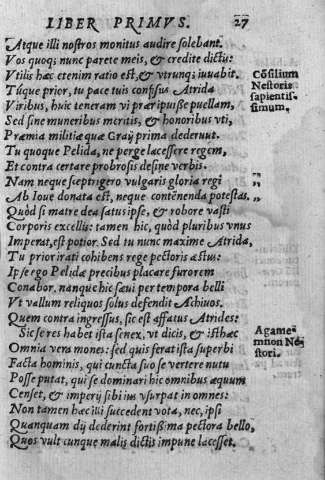 LIBER PRIMVS. 27
Atque illi nostros monitus audire solebant.
Vos quoq; nunc parete meis, & credite dictu:
Vtilis hæc etenim ratio est, & vtrunq; iuuabit.
Túque prior, tu pace tuis confisus Atrida
Viribus, huic teneram vi præripuisse puellam,
Sed sine muneribus meritis, & honoribus vti,
Præmia militiæ quæ Graÿ prima dederunt.
Tu quoque Pelida, ne perge lacessere regem,
Et contra certare probrosis desine verbis.
Nam neque sceptrigero vulgaris gloria regi
Ab Ioue donata est, neque contẽnenda potestas.
Quòd si matre dea satus ipse, & robore vasti
Corporis excellis: tamen hic, quòd pluribus vnus
Imperat, est potior. Sed tu nunc maxime Atrida,
Tu prior irati cohibens rege pectoris æstus:
Ipse ego Pelidæ precibus placare furorem
Conabor. nanque hic sæui per tempora belli
Vt vallum reliquos solus defendit Achiuos.
Quem contra ingressus, sic est affatus Atrides:
Sic se res habet ista senex, vt dicis, & isthæc
Omnia vera mones: sed quis ferat ista superbi
Facta hominis, qui cuncta suo se vertere nutu
Posse putat, qui se dominari hic omnibus æquum
Censet, & imperÿ sibi ius vsurpat in omnes:
Non tamen hæc illi succedent vota, nec, ipsi
Quanquam dÿ dederint fortißima pectora bello,
Quos vult cunque malis dictis impune lacesset.
Cõsilium
Nestoris
sapientis-
simum.
,,
,,
Agame-
mnon Ne-
stori.